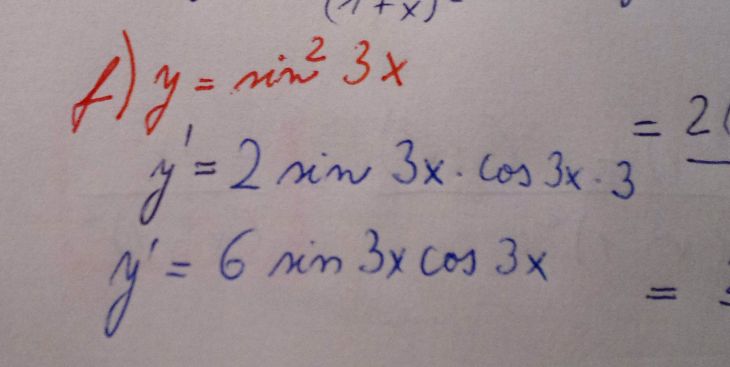 (1+x)
f) y = sin² 3x
y' = 2 sin 3x · cos 3x · 3
y' = 6 sin 3x cos 3x
= 2(
=